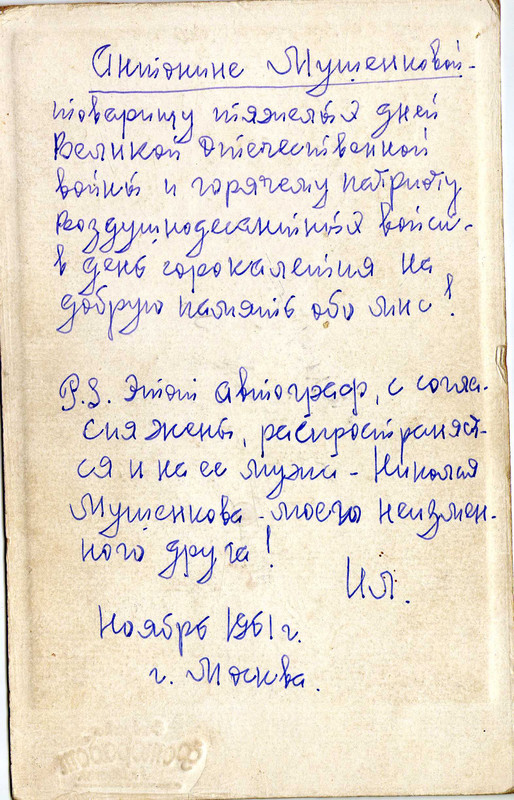 Антонине Мушенковой-
товарищу тяжелых дней
Великой Отечественной
войны и горячему патриоту
Воздушнодесантных войск-
в день сорокалетия на
добрую память обо мне!
P.S. Этот автограф, с согла-
сия жены, распространяет-
ся и на ее мужа - Николая
Мушенкова - моего неизмен-
ного друга!
И.Л.
Ноябрь 1961 г.
г. Москва.